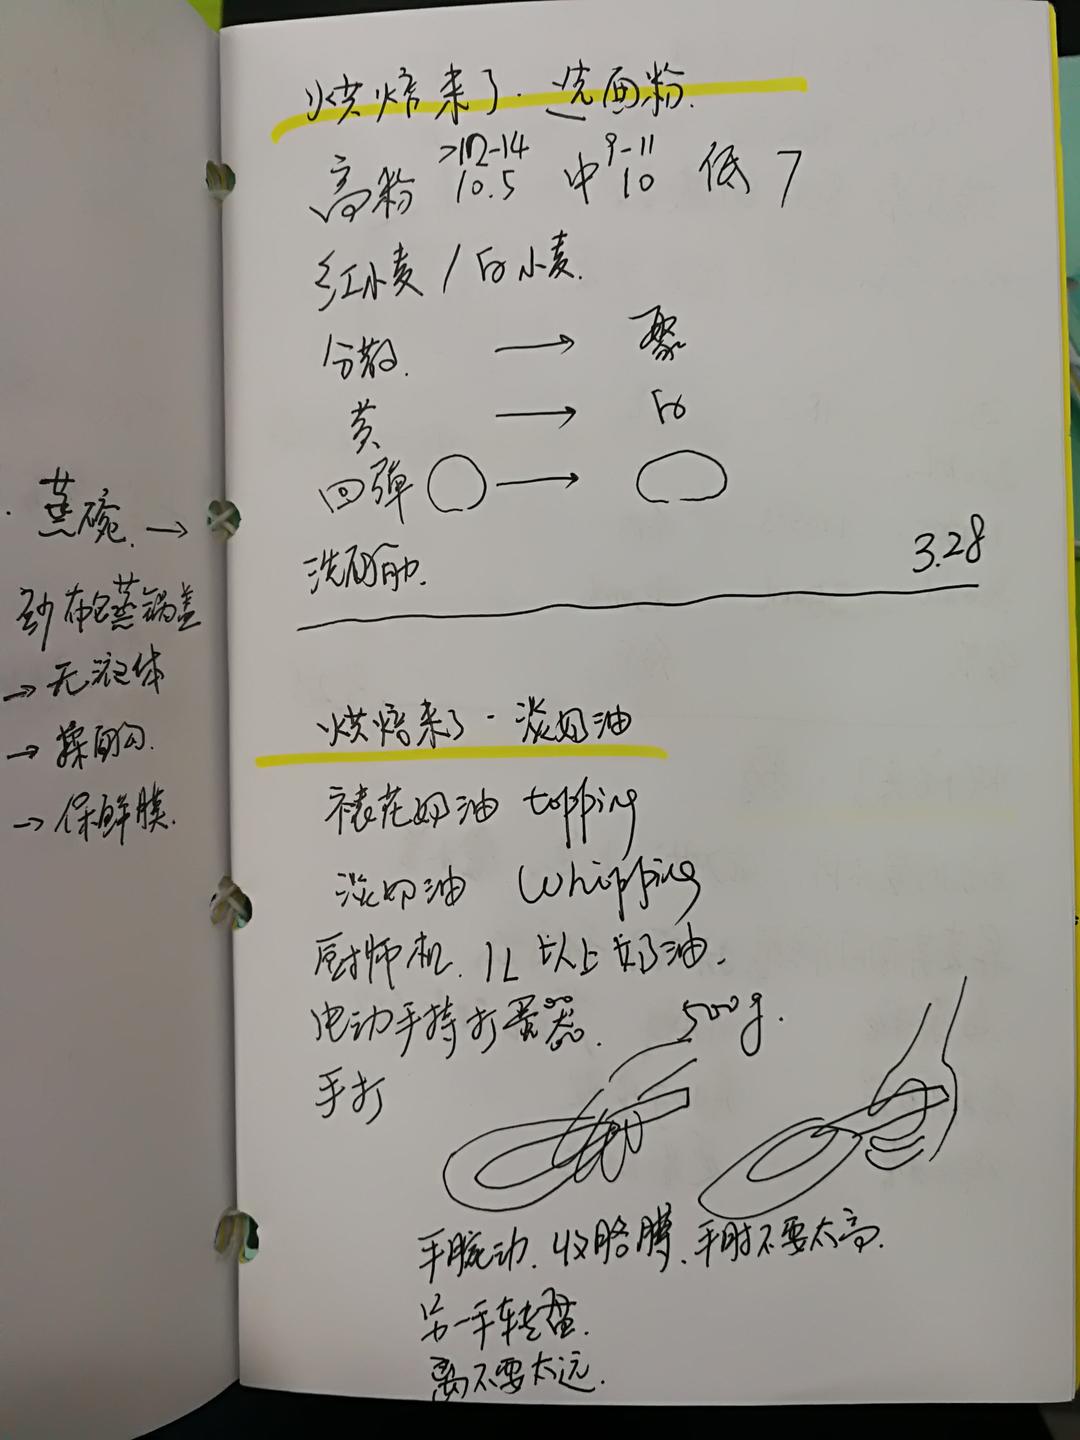 蒸碗. →
纱布包蒸锅盖
→ 无液体
→ 揉面勾.
→ 保鲜膜.
烘焙来了·选面粉.
>12-14 9-11
高粉 10.5 中 10 低 7
红小麦 / 白小麦.
分散. → 聚
黄 → 白
回弹 ○ → ○
洗面筋.
3.28
烘焙来了·淡奶油
裱花奶油 topping
淡奶油 Whipping
厨师机. 1L 以上奶油.
电动手持打蛋器. 500g.
手打
手腕动. 收胳膊、手肘不要太高.
另一手转盆.
离不要太远.